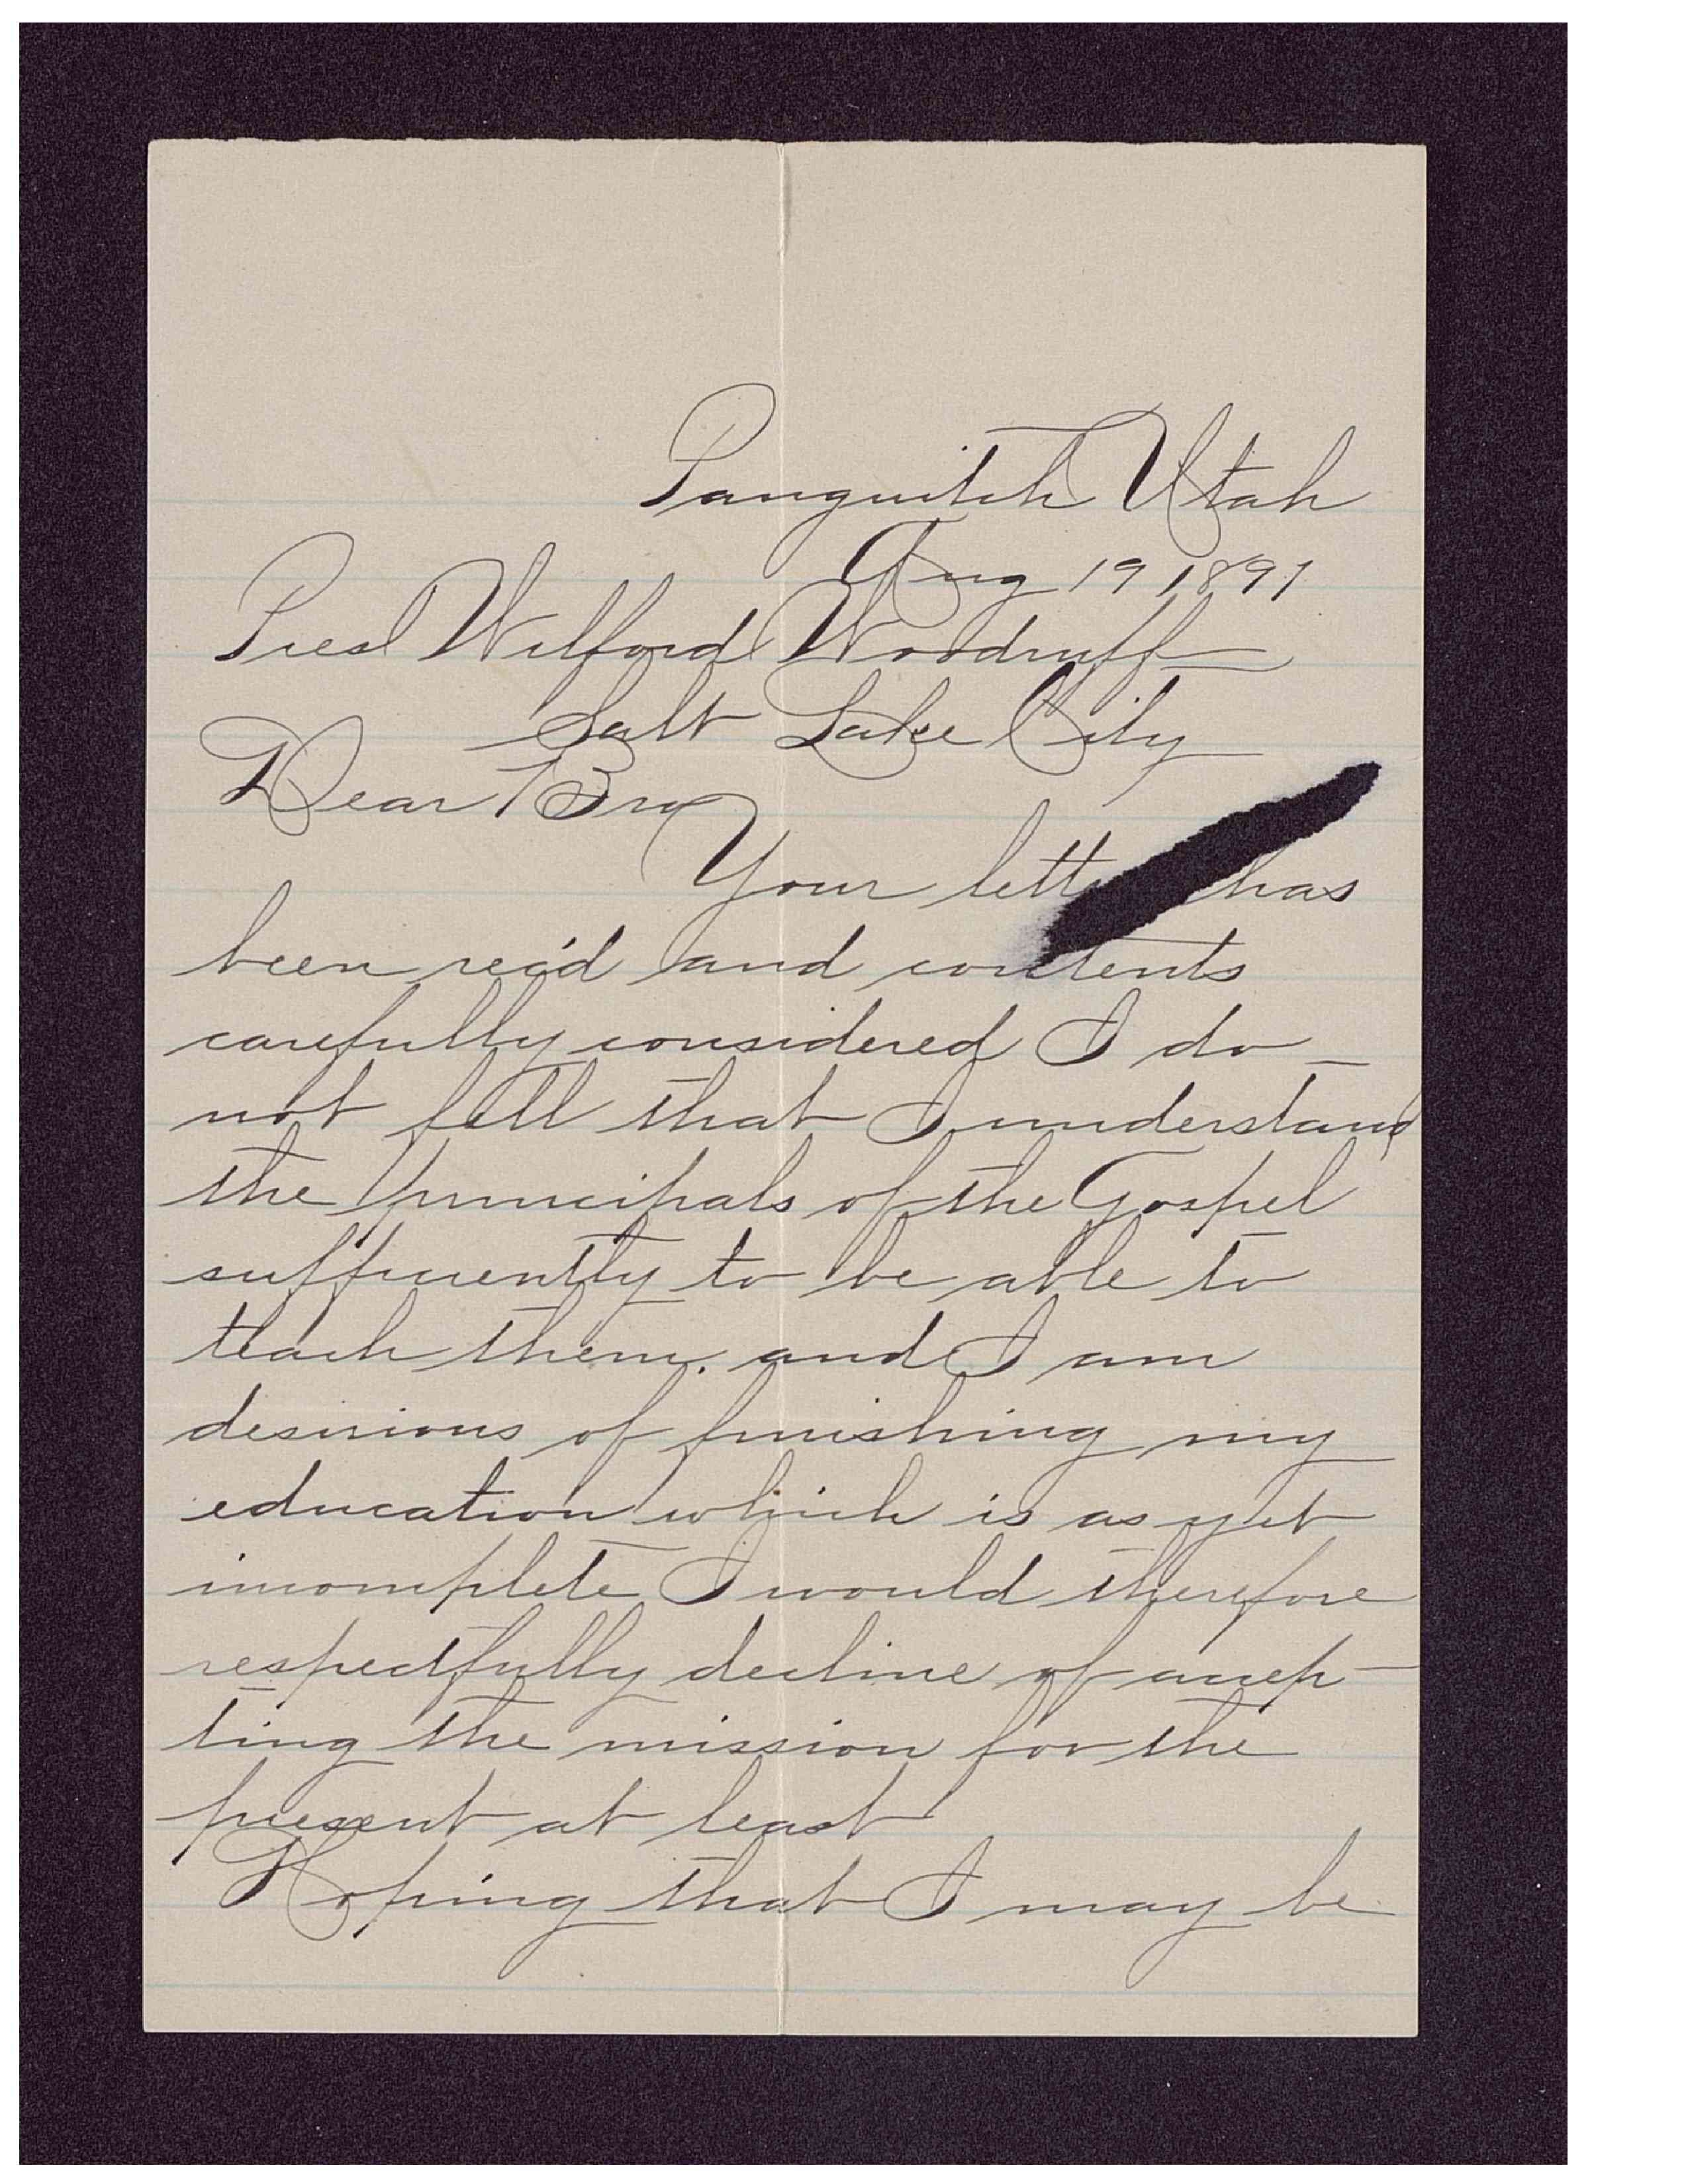 Panguitch Utah
Aug 19 1891
Pres Wilford Woodruff
Salt Lake City
Dear Bro
Your letter has
been rec'd and contents
carefully considered I do
not fell that I understand
the Principals of the Gospel
sufficiently to be able to
teach them. and I am
desirious of finishing my
education which is as yet
incomplete I would therefore
respectfully decline of accep-
ting the mission for the
present at least
Hoping that I may be